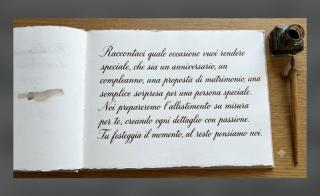 Raccontaci quale occasione vuoi rendere
speciale, che sia un anniversario, un
compleanno, una proposta di matrimonio, una
semplice sorpresa per una persona speciale.
Noi prepareremo l'allestimento su misura
per te, creando ogni dettaglio con passione.
Tu festeggia il momento, al resto pensiamo noi.